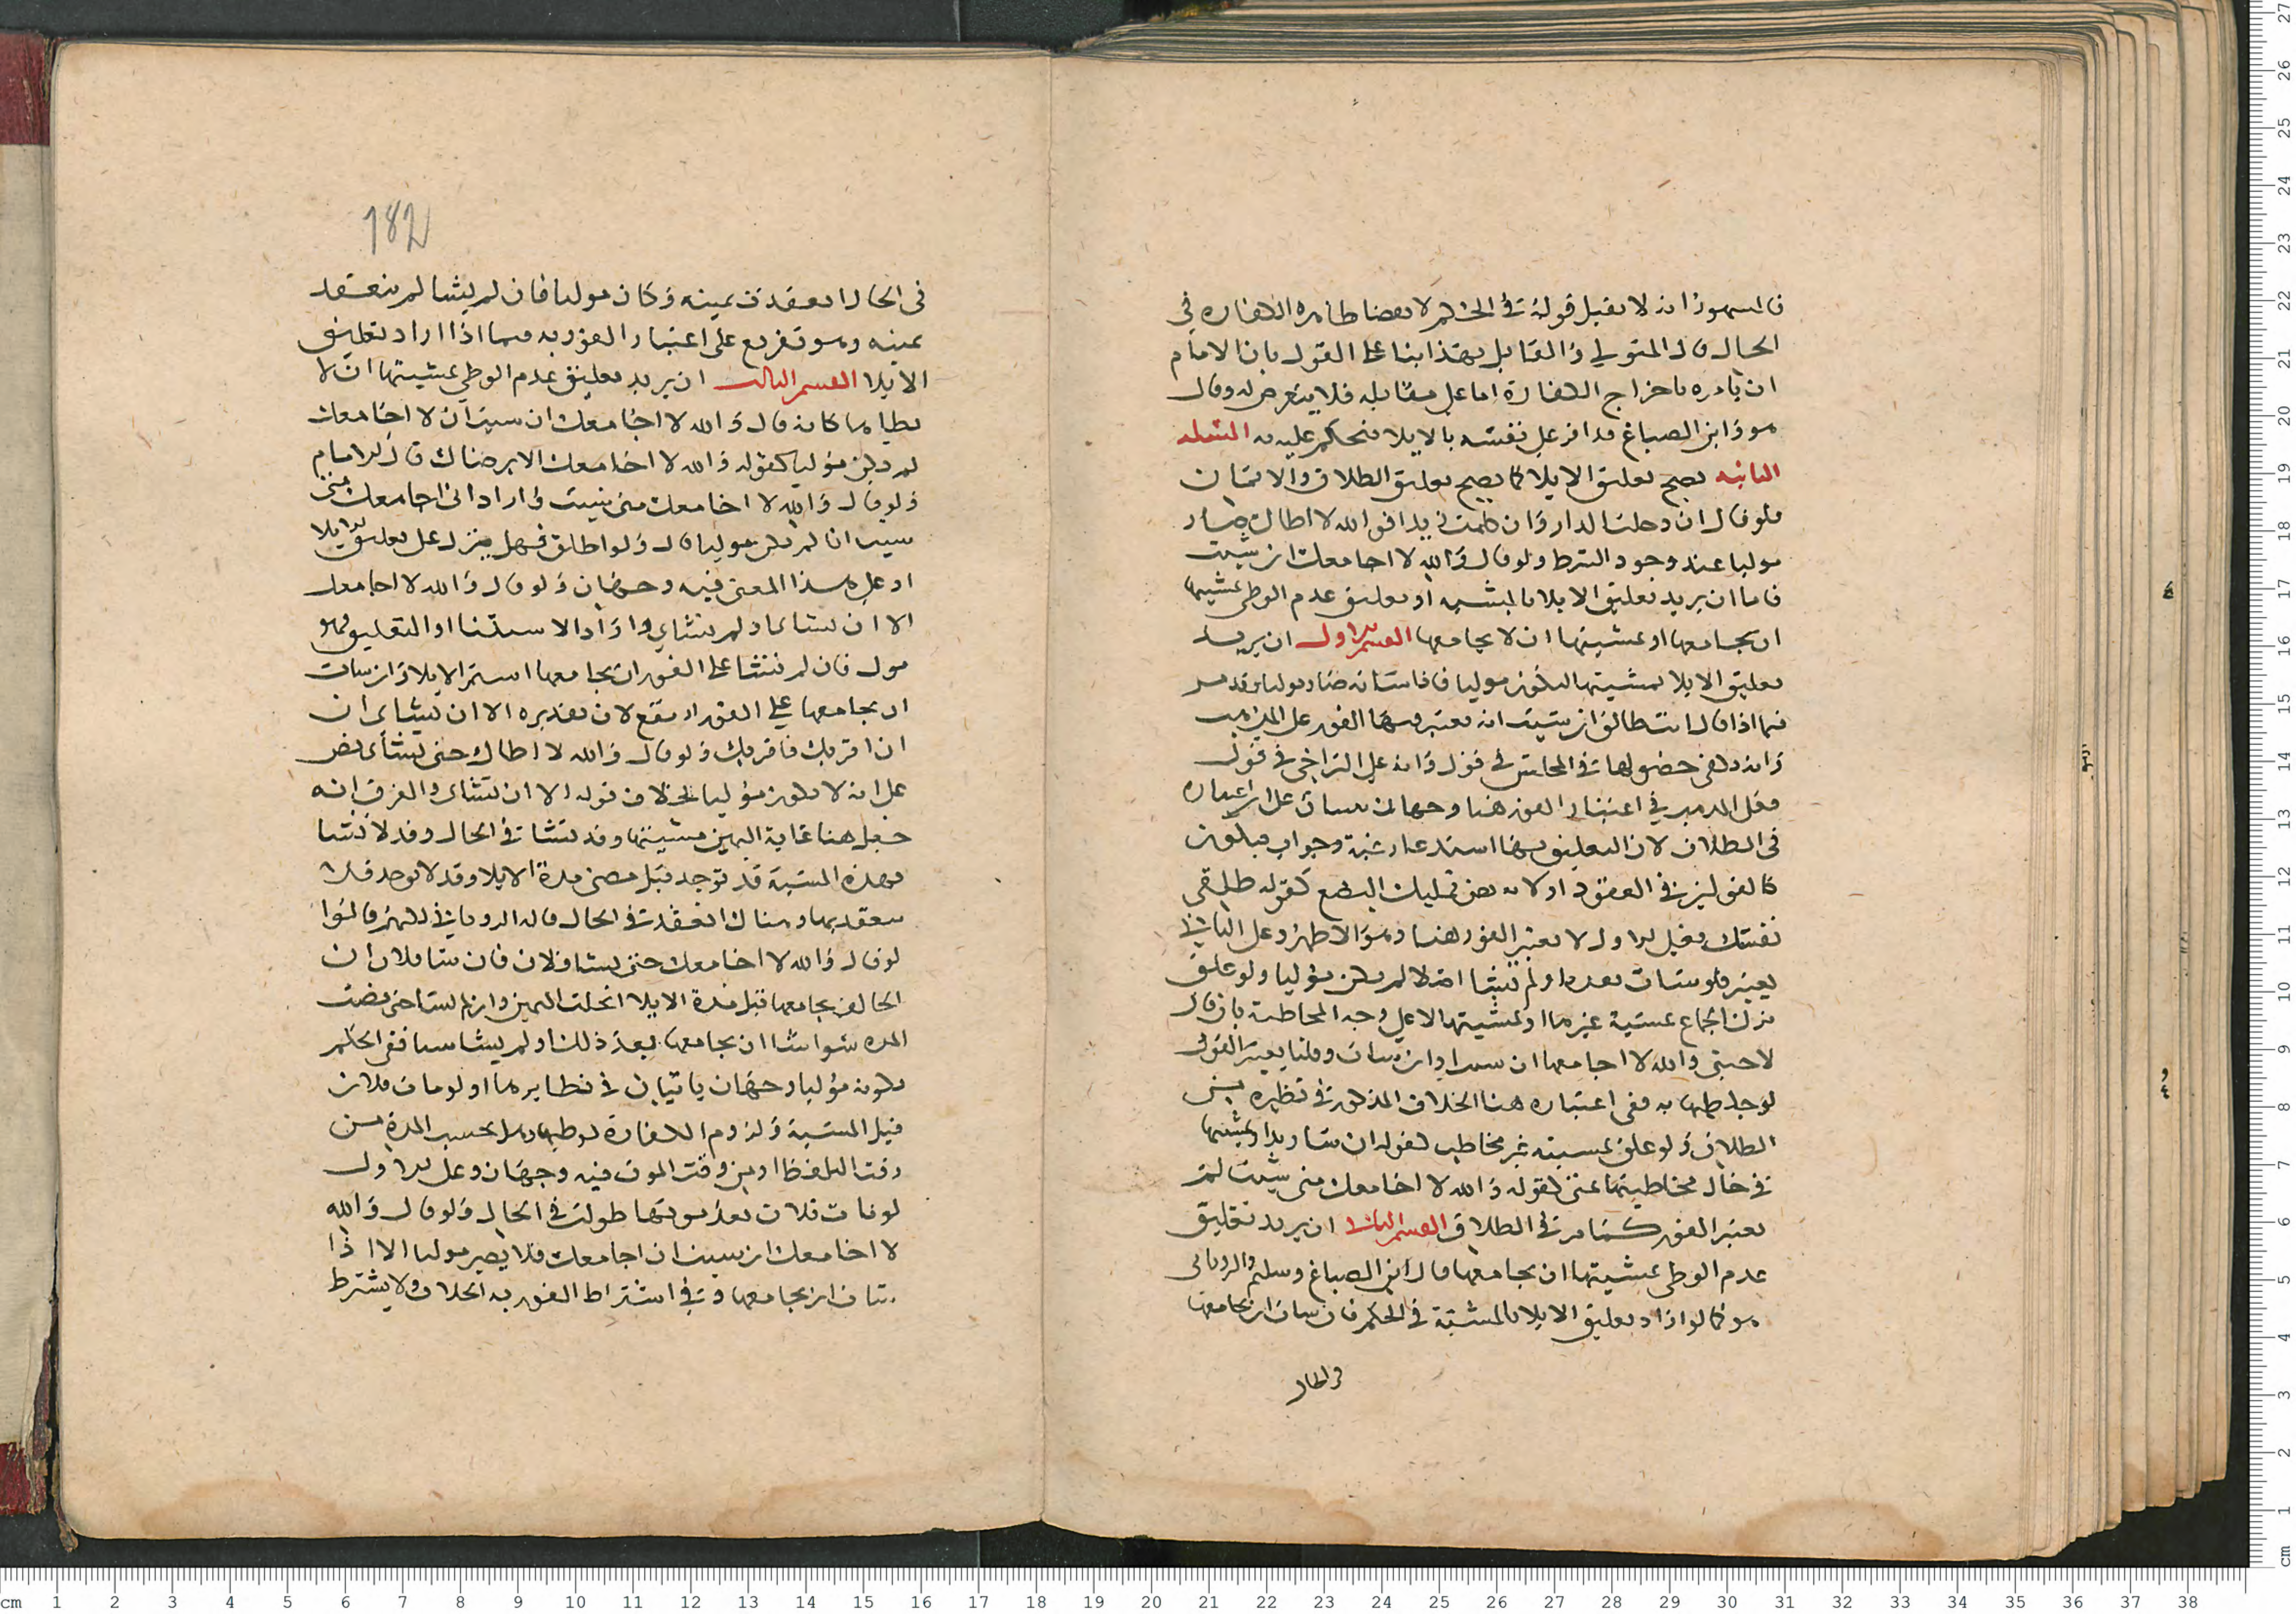 فالمشهور انه لا يقبل قوله في الحكم لاقتضا ظاهره الكفارة في
الحال قال المتولي والقايل بهذا بنا على القول بان للامام
ان يامره باخراج الكفارة اما على مقابله فلا يتعرض له وقال
هو وابن الصباغ قد اقر على نفسه بالايلا فنحكم عليه به المسله
الثانيه يصح تعليق الايلا كما يصح تعليق الطلاق والايمان
فلو قال ان دخلت الدار وان كلمت زيدا فوالله لا اطاك صار
موليا عند وجود الشرط ولو قال والله لا اجامعك ان شيت
فاما ان يريد تعليق الايلا بالمشيه او تعليق عدم الوطي بمشيتها
ان يجامعها او بمشيتها ان لا يجامعها القسم الاول ان يريد
تعليق الايلا بمشيتها ليكون موليا فاذا شات صار موليا وقد مر
فيما اذا قال انت طالق ان شيت انه يعتبر فيها الفور على المذهب
وانه يكفي حصولها في المجلس في قول وانه على التراخي في قول
فعلى المذهب في اعتبار الفور هنا وجهان على ان اعتباره
في الطلاق لان التعليق بها استدعا رغبة وجواب فيكون
كالقبول في العقود او لانه يضمن تمليك البضع كقوله طلقي
نفسك فعلى الاول لا يعتبر الفور هنا وهو الاظهر وعلى الثاني
يعتبر فلو شات بعدها ولم تشا اصلا لم يكن موليا ولو علق
ترك الجماع بمشية غيرها او بمشيتها لا على وجه المخاطبة بان قال
لاجنبي والله لا اجامعها ان شات وقلنا يعتبر الفور
لو خاطبها به ففي اعتباره هنا الخلاف المذكور في نظيره من
الطلاق ولو علق بمشية غير مخاطب كقوله ان شا زيد او بمشيتها
في حال مخاطبتها بمتى كقوله والله لا اجامعك متى شيت لم
يعتبر الفور كما مر في الطلاق القسم الثاني ان يريد تعليق
عدم الوطي بمشيتها ان يجامعها قال ابن الصباغ وسليم والروياني
هو كما لو اراد تعليق الايلا بالمشية في الحكم فان شات ان يجامعها
في الحال
182
في الحال انعقدت يمينه وكان موليا فان لم يشا لم ينعقد
يمينه وهو تفريع على اعتبار الفور به فيما اذا اراد تعليق
الايلا القسم الثالث ان يريد تعليق عدم الوطي بمشيتها ان لا
يطاها كانه قال والله لا اجامعك ان شيت ان لا اجامعك
لم يكن موليا كقوله والله لا اجامعك الا برضاك قال الامام
ولو قال والله لا اجامعك متى شيت واراد اني اجامعك متى
شيت ان لم يكن موليا قال ولو اطلق فهل ينزل على تعليق الايلا
او على هذا المعنى فيه وجهان ولو قال والله لا اجامعك
الا ان تشاي او لم تشاي واراد الاستثنا او التعليق فهو
مول فان لم تشا على الفور ان يجامعها استمر الايلا وان شات
ان يجامعها على الفور ارتفع لان تقديره الا ان تشاي ان
اقربك فاقربك ولو قال والله لا اطاك حتى تشاي نص
على انه لا يكون موليا بخلاف قوله الا ان تشاي والفرق انه
جعل هنا غاية اليمين مشيتها وقد تشا في الحال وقد لا تشا
فهذه المشية قد توجد قبل مضي مدة الايلا وقد لا توجد فلا
ينعقد بها وهناك انعقدت في الحال قاله الروياني قالوا
لو قال والله لا اجامعك حتى يشا فلان فان شا فلان ان
الحالف يجامعها قبل مدة الايلا انحلت اليمين وان لم يشا حتى مضت
المده سوا شا ان يجامعها بعد ذلك او لم يشا شيا ففي الحكم
بكونه موليا وجهان ياتيان في نظايرها ولو مات فلان
قبل المشية ولزوم الكفارة لوطيها وهل تحسب المدة من
وقت اللفظ او من وقت الموت فيه وجهان وعلى الاول
لو مات فلان بعد مدتها طولبت في الحال ولو قال والله
لا اجامعك ان شيت ان اجامعك فلا يصير موليا الا اذا
شات ان يجامعها وفي اشتراط الفور به الخلاف ولا يشترط